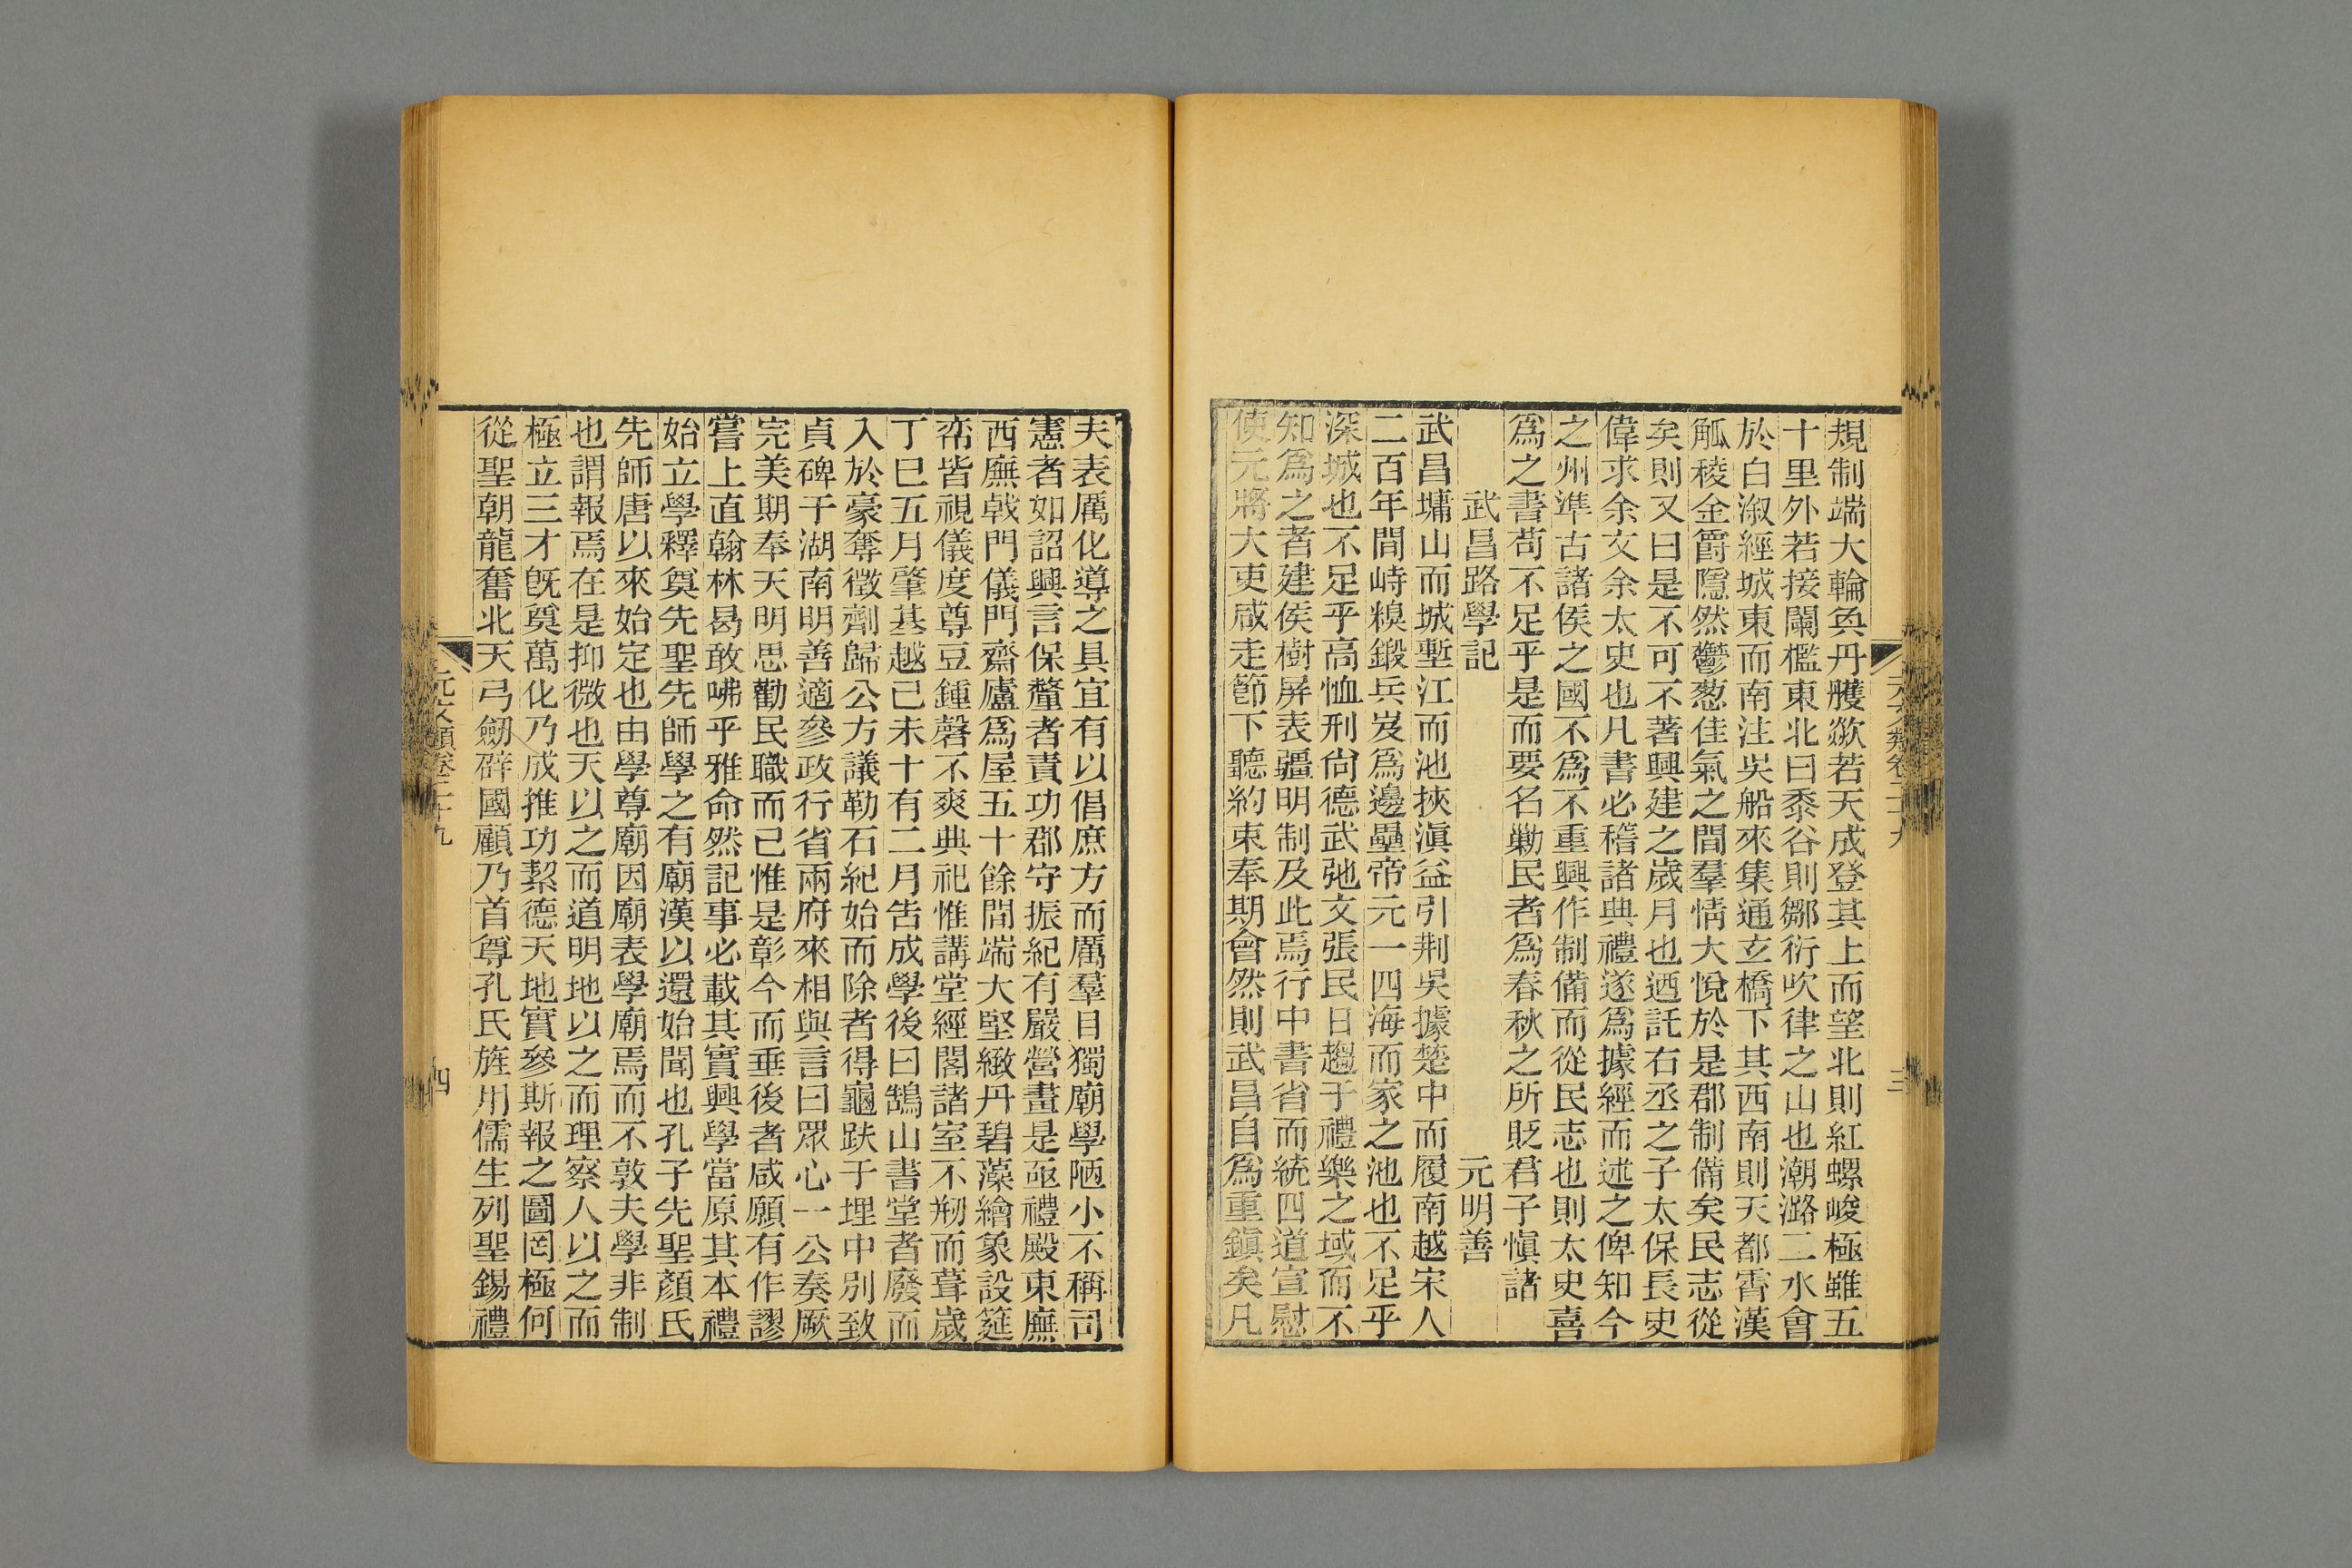 規制端大輪奐丹雘歘若天成登其上而望北則紅螺峻極雖五
十里外若接闌檻東北曰黍谷則鄒衍吹律之山也潮潞二水會
於白溆經城東而南注吳船來集通玄橋下其西南則天都霄漢
觚稜金爵隱然鬱葱佳氣之間羣情大悅於是郡制備矣民志從
矣則又曰是不可不著興建之歲月也迺託右丞之子太保長史
偉求余文余太史也凡書必稽諸典禮遂爲據經而述之俾知今
之州準古諸侯之國不爲不重興作制備而從民志也則太史喜
爲之書苟不足乎是而要名勦民者爲春秋之所貶君子愼諸
武昌路學記　元明善
武昌墉山而城塹江而池挾滇益引荆吳據楚中而履南越宋人
二百年間峙糗鍛兵岌爲邊壘帝元一四海而家之池也不足乎
深城也不足乎高恤刑尙德武弛文張民日趨于禮樂之域而不
知爲之者建侯樹屏表疆明制及此焉行中書省而統四道宣慰
使元將大吏咸走節下聽約束奉期會然則武昌自爲重鎭矣凡
元文類卷二十九
三
夫表厲化導之具宜有以倡庶方而厲羣目獨廟學陋小不稱司
憲者如詔興言保釐者責功郡守振紀有嚴營畫是亟禮殿東廡
西廡戟門儀門齋廬爲屋五十餘間端大堅緻丹碧藻繪象設筵
帟皆視儀度尊豆鍾磬不爽典祀惟講堂經閣諸室不剏而葺歲
丁巳五月肇基越己未十有二月吿成學後曰鵠山書堂者廢而
入於豪奪徵劑歸公方議勒石紀始而除者得龜趺于埋中別致
貞碑于湖南明善適參政行省兩府來相與言曰眾心一公奏厥
完美期奉天明思勸民職而已惟是彰今而垂後者咸願有作謬
嘗上直翰林曷敢咈乎雅命然記事必載其實興學當原其本禮
始立學釋奠先聖先師學之有廟漢以還始聞也孔子先聖顏氏
先師唐以來始定也由學尊廟因廟表學廟焉而不敦夫學非制
也謂報焉在是抑微也天以之而道明地以之而理察人以之而
極立三才旣奠萬化乃成推功絜德天地實參斯報之圖罔極何
從聖朝龍奮北天弓劒辟國顧乃首尊孔氏旌用儒生列聖錫禮
元文類卷二十九
四